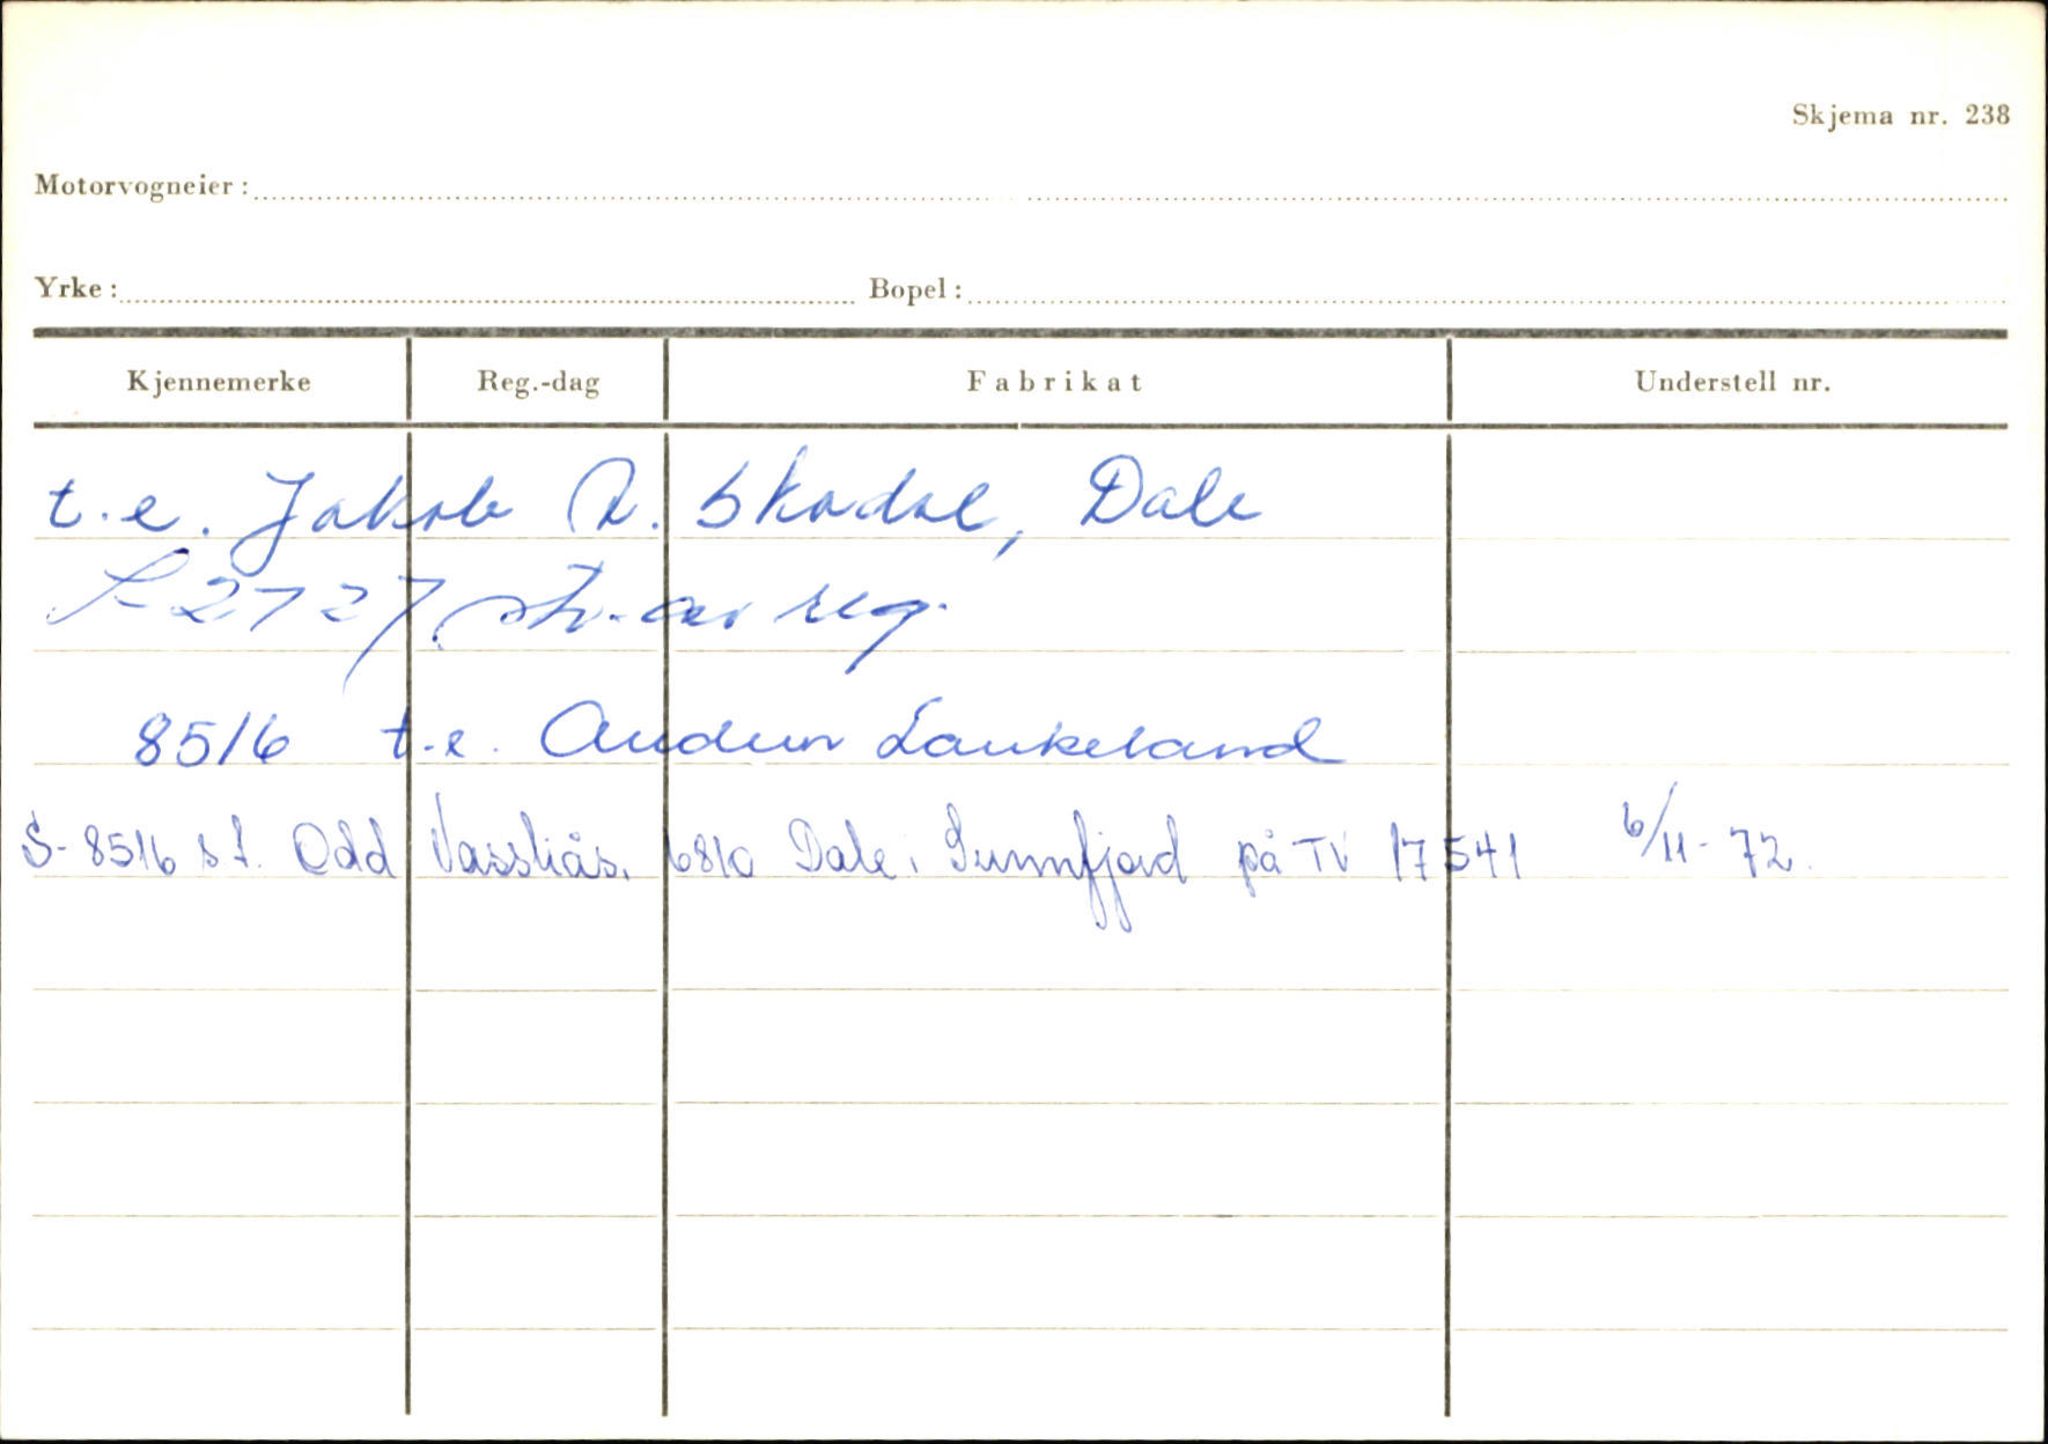 Skjema nr. 238
Motorvogneier:
Yrke: Bopel:
Kjennemerke Reg.-dag Fabrikat Understell nr.
t.e. Jakob R. Skadal, Dale
S2727 str. av reg.
8516 t.e. Audun Laukeland
S-8516 s.t. Odd Vassliås. 6810 Dale i Sunnfjord på TV 17541 6/11-72.